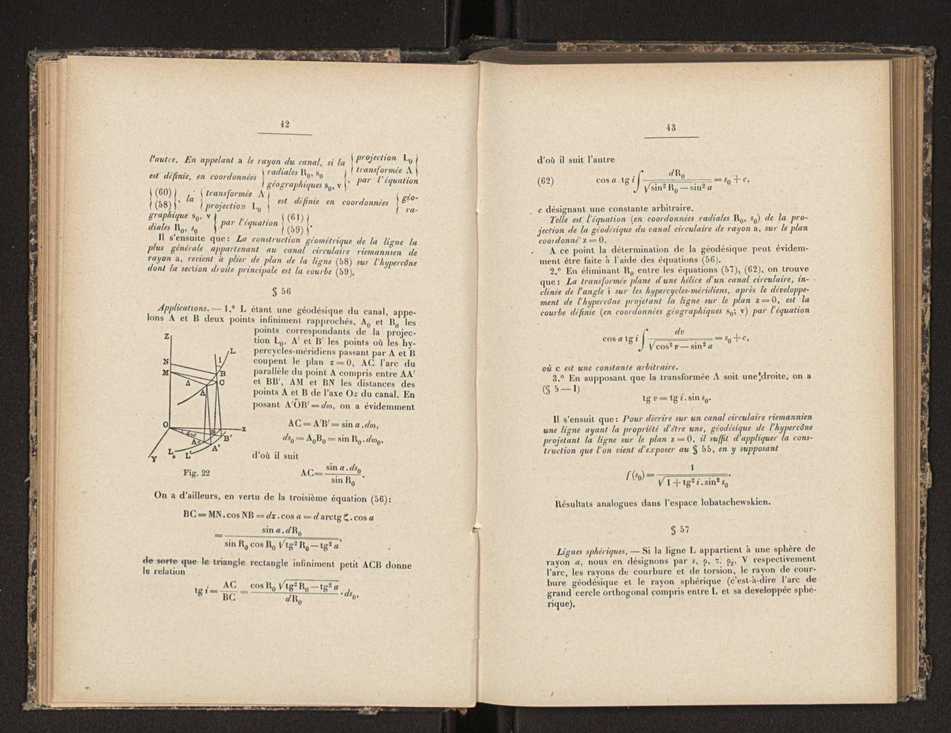 42
l'autre. En appelant a le rayon du canal, si la { projection L₀ / transformée Λ }
est définie, en coordonnées { radiales R₀, s₀ / géographiques s₀, v }, par l'équation
{ (60) / (58) }, la { transformée Λ / projection L₀ } est définie en coordonnées { géo- / ra-
graphique s₀, v / diales R₀, s₀ } par l'équation { (61) / (59) }.
Il s'ensuite que: La construction géométrique de la ligne la
plus générale appartenant au canal circulaire riemannien de
rayon a, revient à plier de plan de la ligne (58) sur l'hypercône
dont la section droite principale est la courbe (59).
§ 56
Applications. — 1.º L étant une géodésique du canal, appe-
lons A et B deux points infiniment rapprochés, A₀ et B₀ les
points correspondants de la projec-
tion L₀. A' et B' les points où les hy-
percycles-méridiens passant par A et B
coupent le plan z = 0, AC l'arc du
parallèle du point A compris entre AA'
et BB', AM et BN les distances des
points A et B de l'axe Oz du canal. En
posant A'ÔB' = ds₀, on a évidemment
AC = A'B' = sin a . ds₀,
ds₀ = A₀B₀ = sin R₀ . ds₀,
d'où il suit
AC = sin a . ds₀ / sin R₀ .
Z
L
N
M
i
B
C
A
A
O
x
B'
A'
L₀
L'
Y
Fig. 22
On a d'ailleurs, en vertu de la troisième équation (56):
BC = MN . cos NB = dz . cos a = d arctg ζ . cos a
= sin a . dR₀ / sin R₀ cos R₀ √tg² R₀ — tg² a ,
de sorte que le triangle rectangle infiniment petit ACB donne
le relation
tg i = AC / BC = cos R₀ √tg² R₀ — tg² a / dR₀ . ds₀,
43
d'où il suit l'autre
(62) cos a tg i ∫ dR₀ / √sin² R₀ — sin² a = s₀ + c,
c désignant une constante arbitraire.
Telle est l'équation (en coordonnées radiales R₀, s₀) de la pro-
jection de la géodésique du canal circulaire de rayon a, sur le plan
coordonné z = 0.
A ce point la détermination de la géodésique peut évidem-
ment être faite à l'aide des équations (56).
2.º En éliminant R₀ entre les équations (57), (62), on trouve
que: La transformée plane d'une hélice d'un canal circulaire, in-
clinée de l'angle i sur les hypercycles-méridiens, après le développe-
ment de l'hypercône projetant la ligne sur le plan z = 0, est la
courbe définie (en coordonnées géographiques s₀; v) par l'équation
cos a tg i ∫ dv / √cos² v — sin² a = s₀ + c,
où c est une constante arbitraire.
3.º En supposant que la transformée Λ soit une droite, on a
(§ 5 — I)
tg v = tg i . sin s₀.
Il s'ensuit que: Pour décrire sur un canal circulaire riemannien
une ligne ayant la propriété d'être une, géodésique de l'hypercône
projetant la ligne sur le plan z = 0, il suffit d'appliquer la cons-
truction que l'on vient d'exposer au § 55, en y supposant
f (s₀) = 1 / √1 + tg² i . sin² s₀ .
Résultats analogues dans l'espace lobatschewskien.
§ 57
Lignes sphériques. — Si la ligne L appartient à une sphère de
rayon a, nous en désignons par s, ρ, τ, ρg, V respectivement
l'arc, les rayons de courbure et de torsion, le rayon de cour-
bure géodésique et le rayon sphérique (c'est-à-dire l'arc de
grand cercle orthogonal compris entre L et sa developpée sphé-
rique).